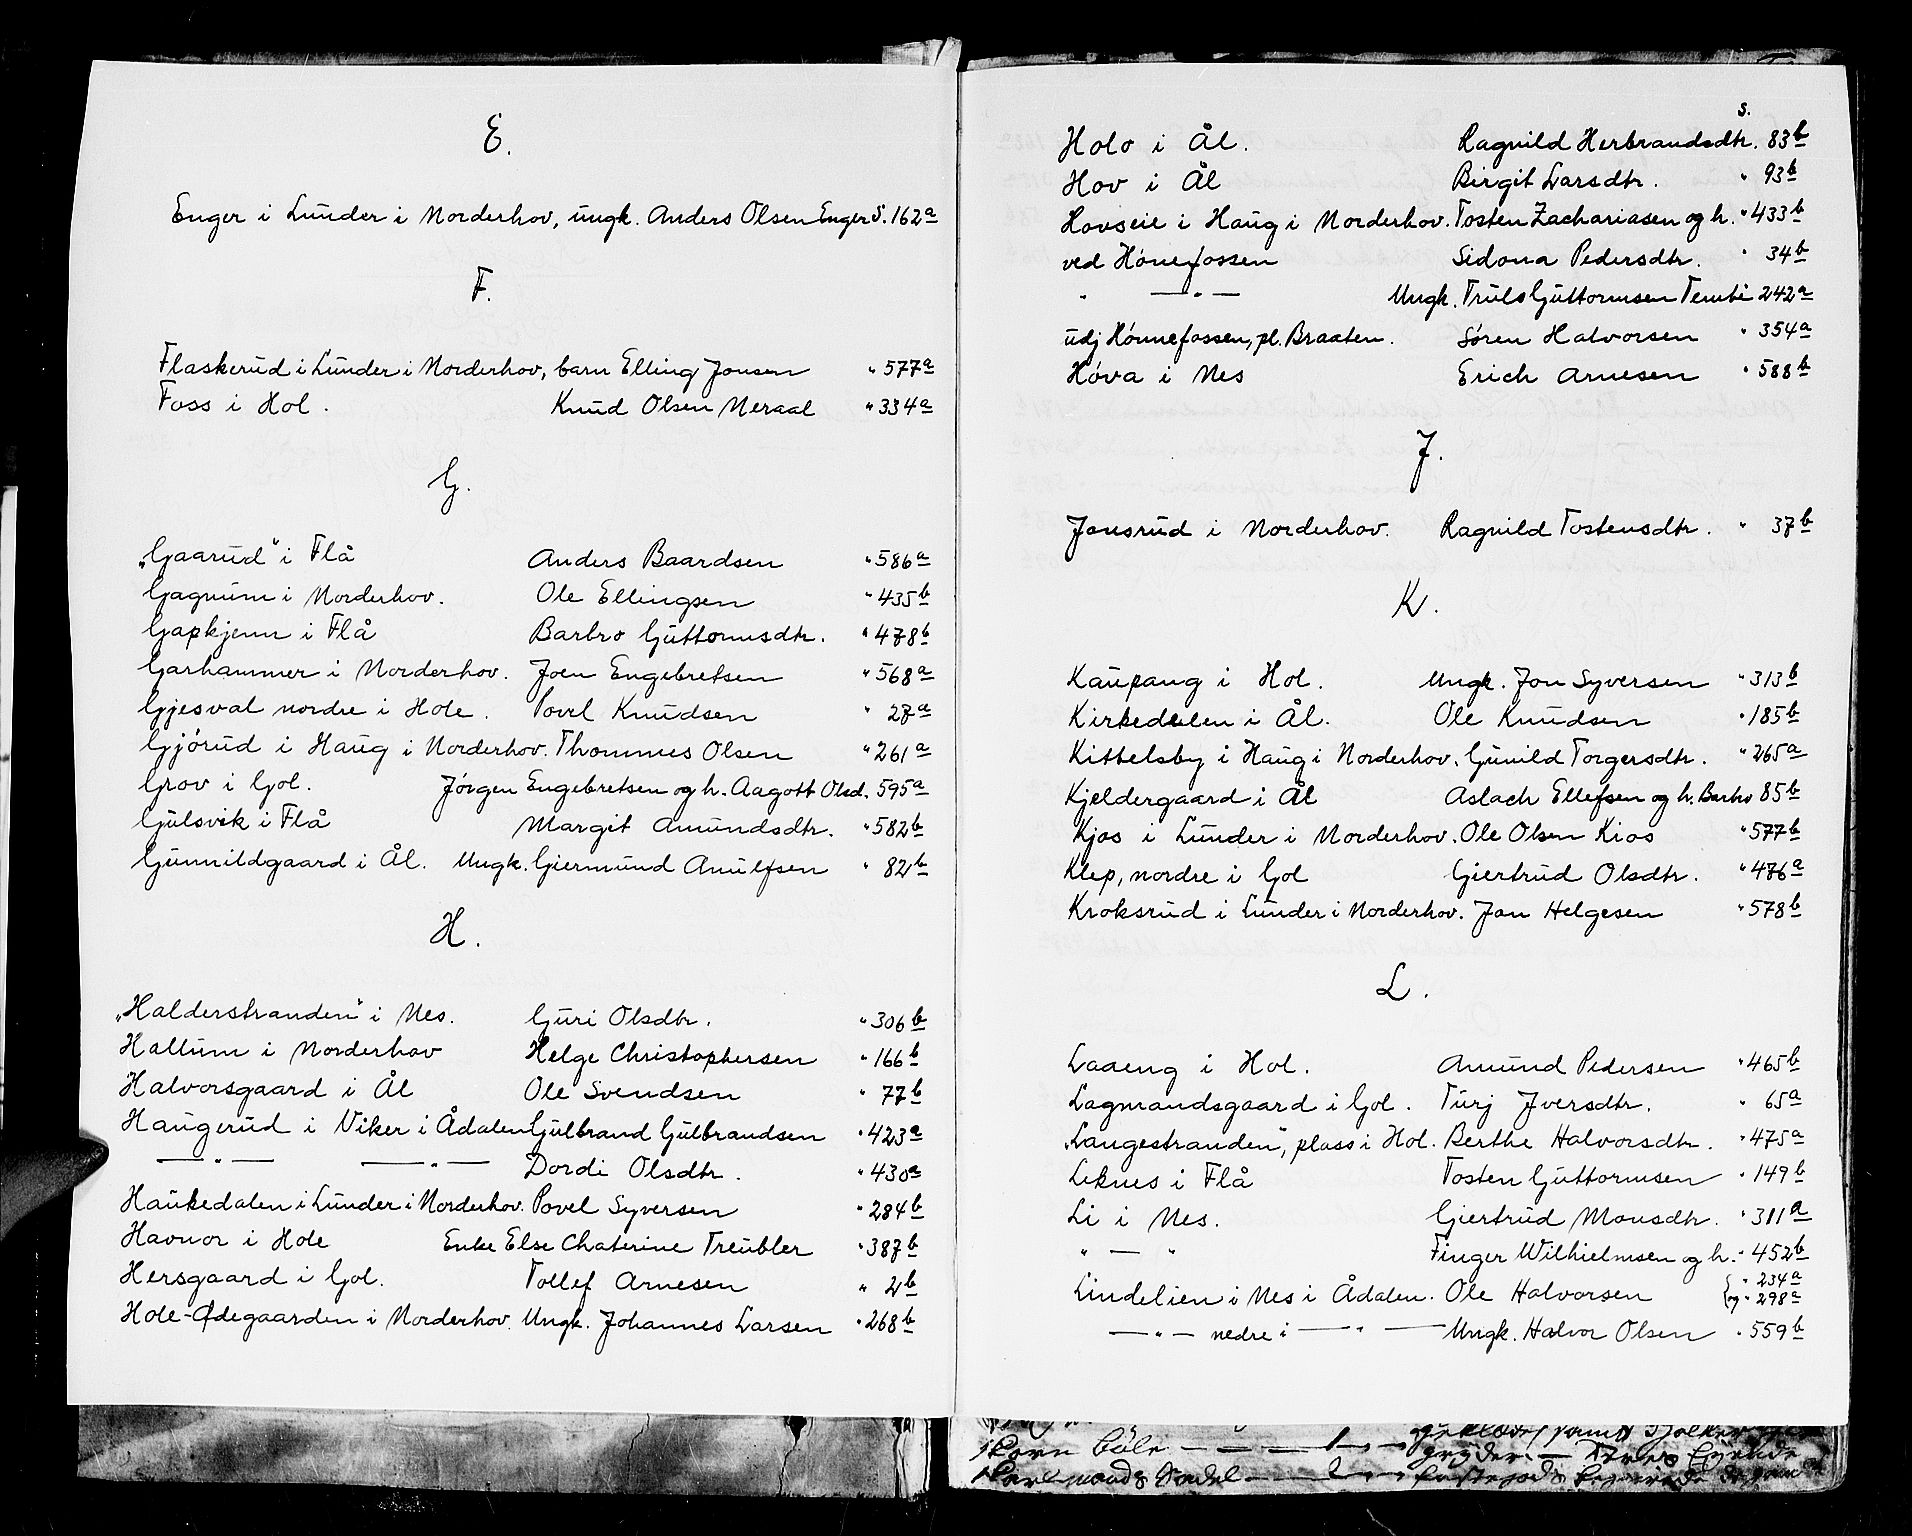 E.
Enger i Lunder i Norderhov, ungk. Anders Olsen Enger S. 162a
F.
Flaskerud i Lunder i Norderhov, barn Elling Jonsen " 577a
Foss i Hol. Knud Olsen Neraal " 334a
G.
"Gaarud" i Flå Anders Baardsen " 586a
Gagnum i Norderhov. Ole Ellingsen " 435b
Gapkjenn i Flå Barbro Guttormsdtr. " 478b
Garhammer i Norderhov. Joen Engebretsen " 568a
Gjesval nordre i Hole. Povel Knudsen " 27a
Gjörud i Haug i Norderhov. Thommes Olsen " 261a
Grov i Gol. Jörgen Engebretsen og h. Aagott Olsd. 595a
Gulsvik i Flå Margit Amundsdtr. " 582b
Gunnildgaard i Ål. Ungk. Giermund Anulfsen " 82b
H.
"Halderstranden" i Nes. Guri Olsdtr. " 306b
Hallum i Norderhov Helge Christophersen " 166b
Halvorsgaard i Ål Ole Svendsen " 77b
Haugerud i Viker i Ådalen Gulbrand Gulbrandsen " 423a
— " — — " — Dordi Olsdtr. " 430a
Haukedalen i Lunder i Norderhov. Povel Syversen " 284b
Havnor i Hole Enke Else Chaterine Treubler " 387b
Hersgaard i Gol. Tollef Arnesen " 2b
Hole-Ødegaarden i Norderhov. Ungk. Johannes Larsen " 268b
S.
Holo i Ål. Ragnild Herbrandsdtr. 83b
Hov i Ål Birgit Larsdtr. " 93b
Hovseie i Haug i Norderhov. Tosten Zachariasen og h. " 433b
ved Hönefossen Sidona Pedersdtr. " 34b
" — " — Ungk. Truls Guttormsen Tembi 242a
udj Hönnefossen, pl. Braaten. Sören Halvorsen " 354a
Höva i Nes Erich Arnesen " 588b
J.
Jonsrud i Norderhov. Ragnild Tostensdtr. " 37b
K.
Kaupang i Hol. Ungk. Jon Syversen " 313b
Kirkedalen i Ål. Ole Knudsen " 185b
Kittelsby i Haug i Norderhov. Gunild Torgersdtr. " 265a
Kjeldergaard i Ål Aslach Ellefsen og h. Barbro 85b
Kjos i Lunder i Norderhov. Ole Olsen Kios " 577b
Klep, nordre i Gol Giertrud Olsdtr. " 476a
Kroksrud i Lunder i Norderhov. Jon Helgesen " 578b
L.
Laaeng i Hol. Amund Pedersen " 465b
Lagmandsgaard i Gol. Turj Jversdtr. " 65a
"Langestranden", plass i Hol. Berthe Halvorsdtr. " 475a
Leknes i Flå Tosten Guttormsen " 149b
Li i Nes. Giertrud Monsdtr. " 311a
" — " Finger Wilhielmsen og h. " 452b
Lindelien i Nes i Ådalen. Ole Halvorsen { " 234a
{og " 298a
— " — nedre i — " — Ungk. Halvor Olsen " 559b